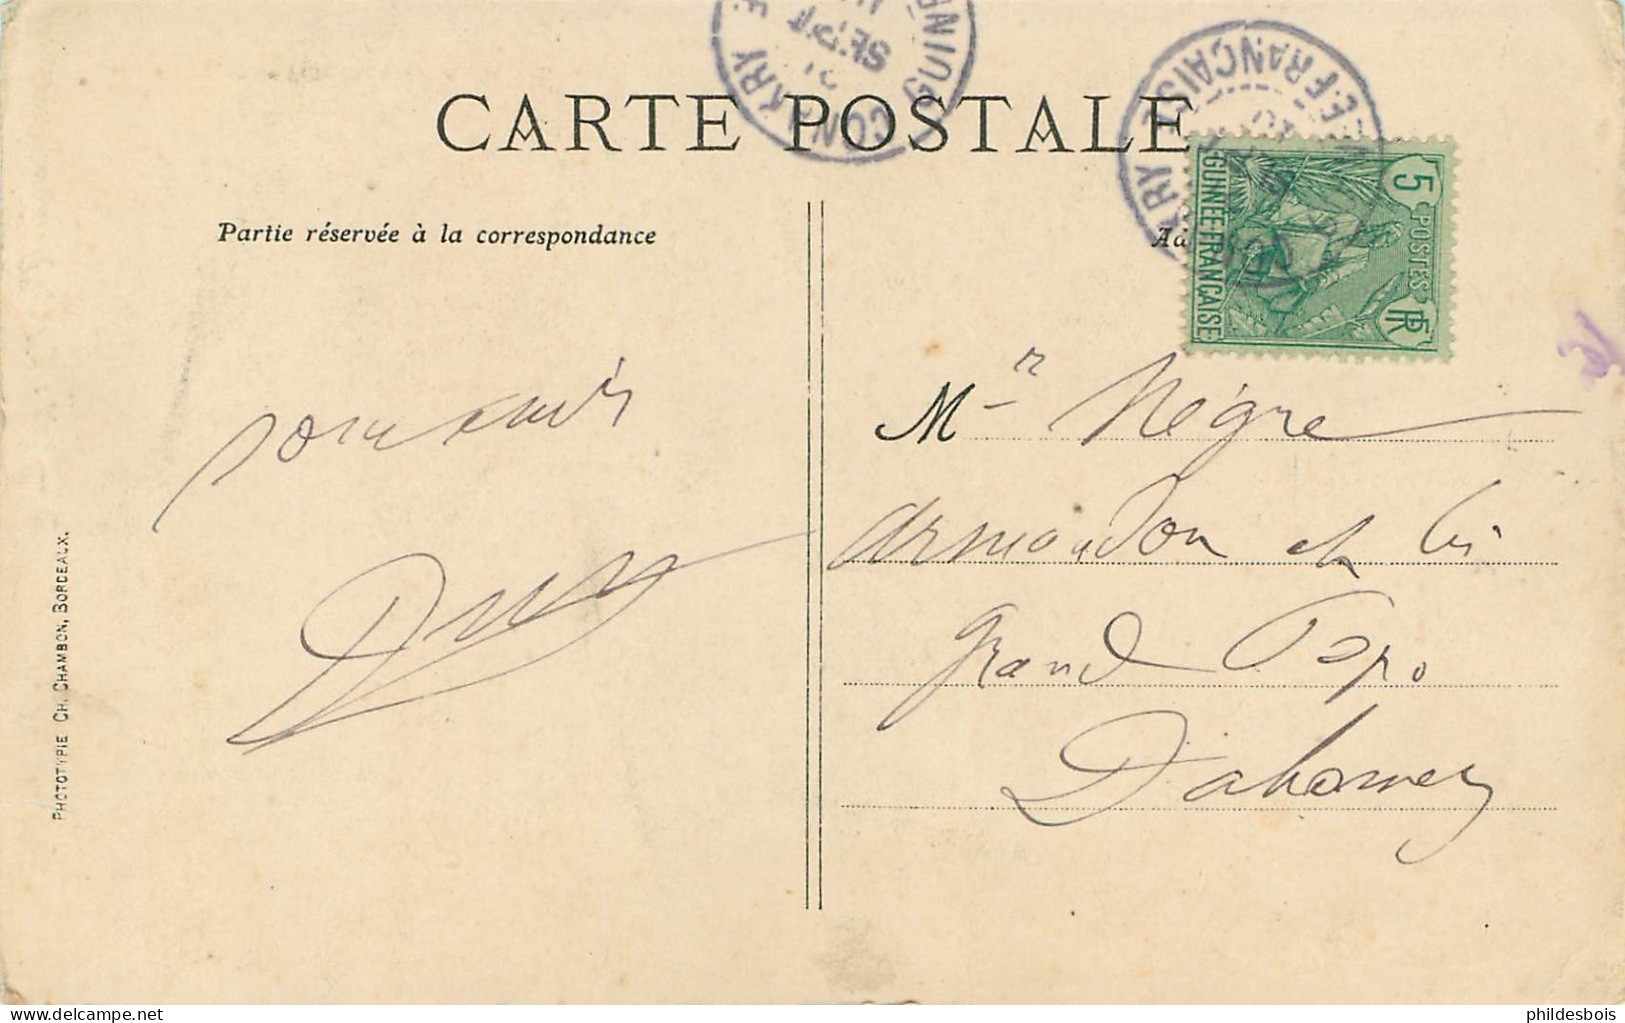 CARTE POSTALE
CONAKRY
SEPT
GUINÉE
CONAKRY
GUINÉE FRANÇAISE
5
POSTES
RF
GUINÉE FRANÇAISE
Partie réservée à la correspondance
Ad
souvenir
Mr Nègre
armandon et Cie
Grand Popo
Dahomey
PHOTOTYPIE CH. CHAMBON, BORDEAUX.
phildesbois